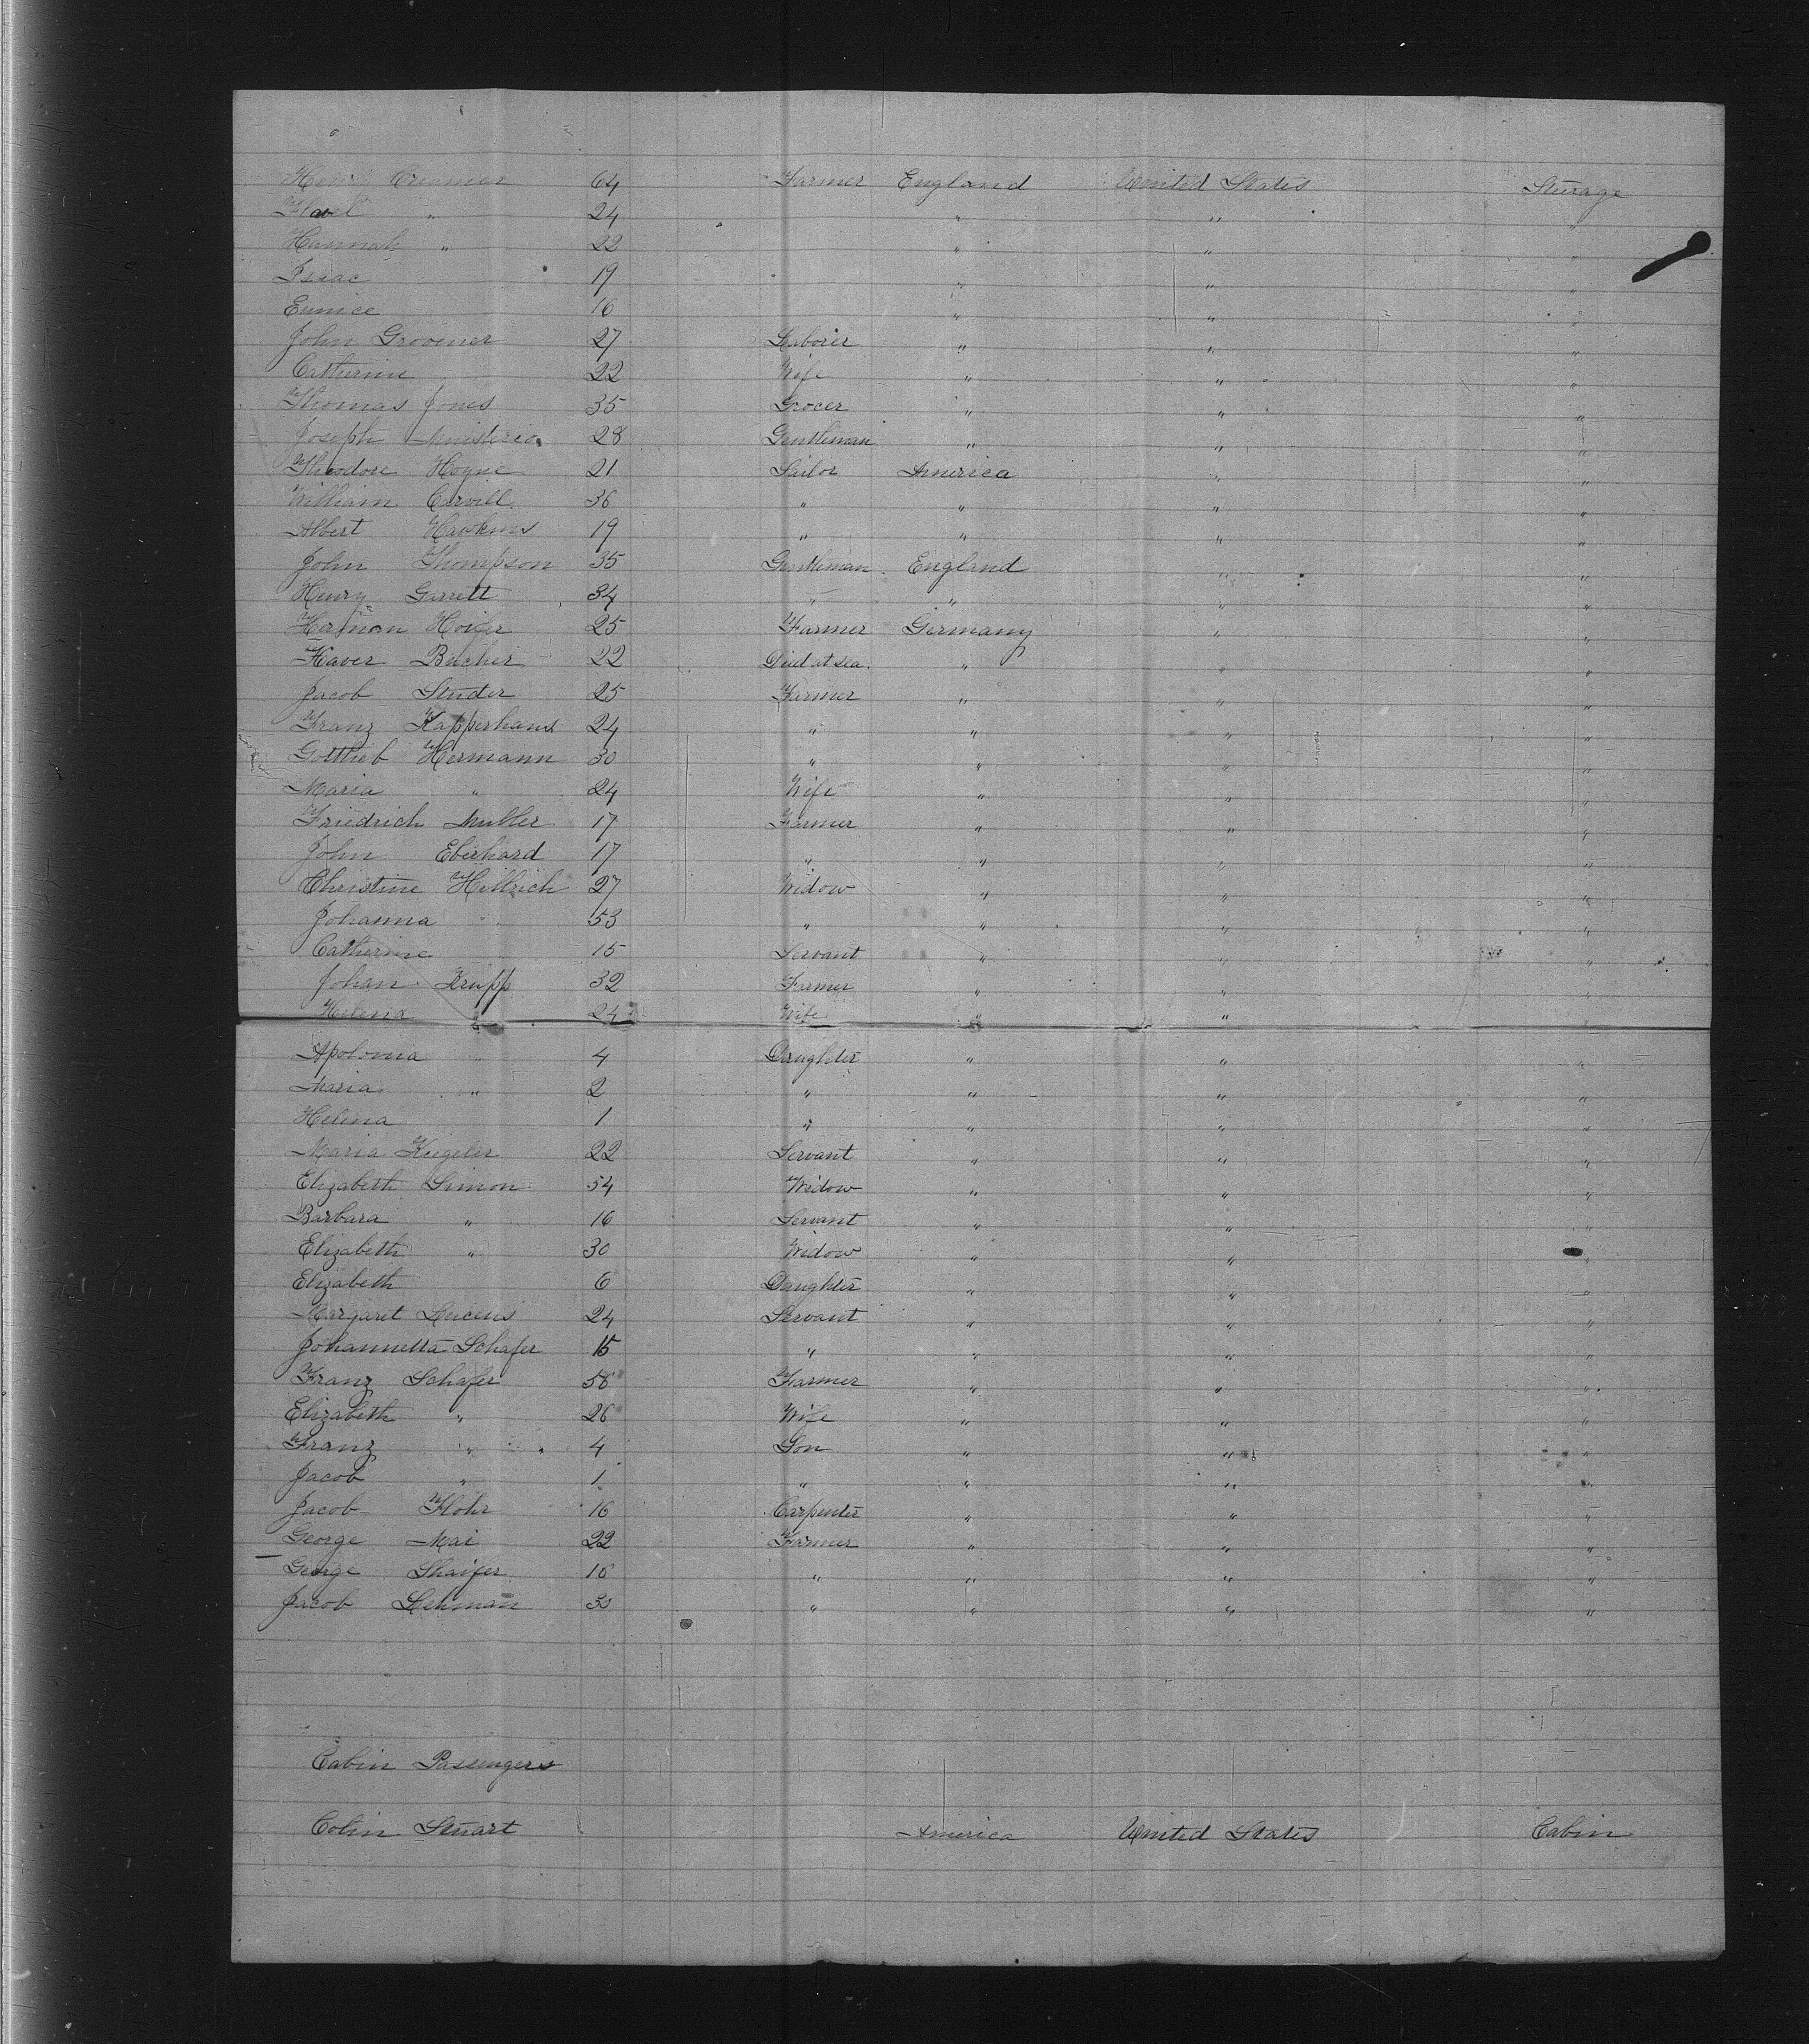 Henry Creamer 64 Farmer England United States Steerage
Flavel " 24 " " "
Hannah " 22 " " "
Isaac 19 " " "
Eunice 16 " " "
John Groomer 27 Laborer " " "
Catherine 22 Wife " " "
Thomas Jones 35 Grocer " " "
Joseph 28 Gentleman " " "
Theodore Hoyne 21 Sailor America " "
William Carvill 36 " " " "
Albert Hawkins 19 " " " "
John Thompson 35 Gentleman England " "
Henry Garrett 34 " " " "
Herman Hoifer 25 Farmer Germany " "
Xaver Bucher 22 Died at sea. " " "
Jacob Studer 25 Farmer " " "
Franz Kapperhans 24 " " " "
Gottlieb Hermann 30 " " " "
Maria " 24 Wife " " "
Friedrich Muller 17 Farmer " " "
John Eberhard 17 " " " "
Christine Hillrich 27 Widow " " "
Johanna " 53 " " " "
Catherine 15 Servant " " "
Johan Krupp 32 Farmer " " "
Helena " 24 Wife " " "
Apolonia " 4 Daughter " " "
Maria " 2 " " " "
Helena 1 " " " "
Maria Kugeler 22 Servant " " "
Elizabeth Simon 54 Widow " " "
Barbara " 16 Servant " " "
Elizabeth " 30 Widow " " "
Elizabeth 6 Daughter " " "
Margaret Lucens 24 Servant " " "
Johannetta Schafer 15 " " " "
Franz Schafer 58 Farmer " " "
Elizabeth " 26 Wife " " "
Franz " 4 Son " " "
Jacob " 1 " " " "
Jacob Flohr 16 Carpenter " " "
George Mai 22 Farmer " " "
George Shaifer 16 " " " "
Jacob Lehman 30 " " " "
Cabin Passengers
Colin Stuart America United States Cabin